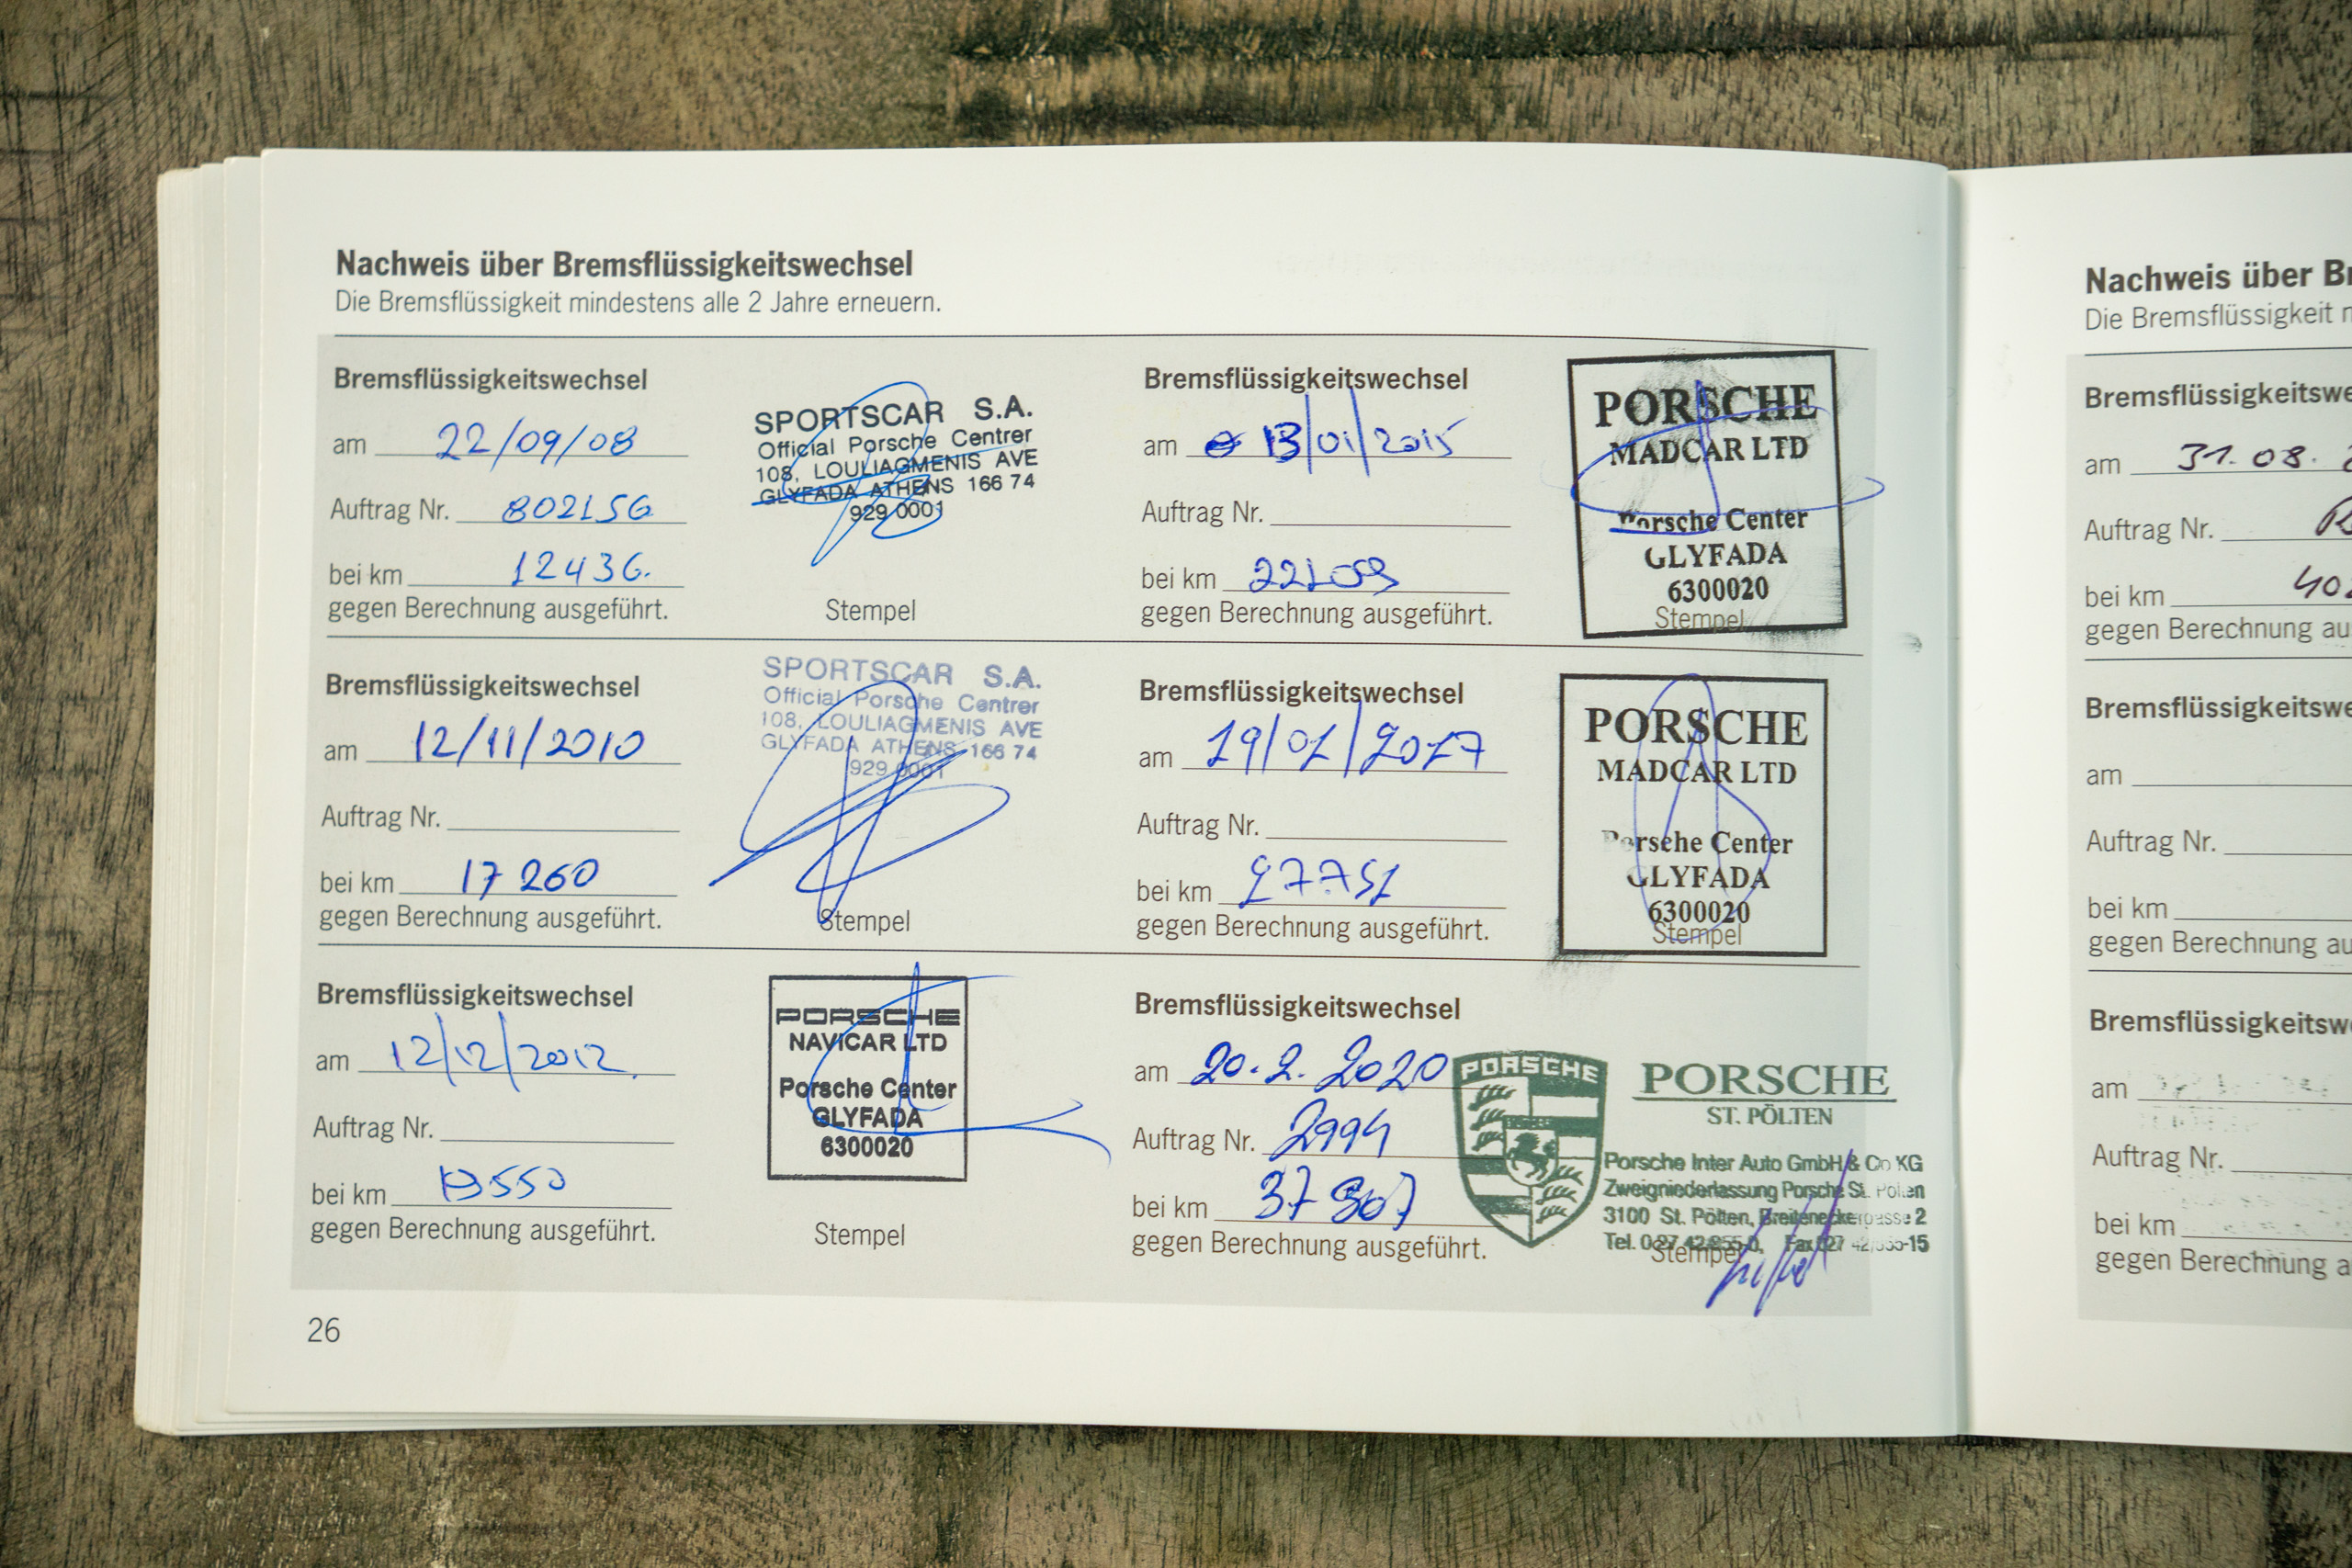 Nachweis über Bremsflüssigkeitswechsel
Die Bremsflüssigkeit mindestens alle 2 Jahre erneuern.
Bremsflüssigkeitswechsel
am 22/09/08
Auftrag Nr. 802156
bei km 12436.
gegen Berechnung ausgeführt.
SPORTSCAR S.A.
Official Porsche Centrer
108, LOULIAGMENIS AVE
GLYFADA ATHENS 166 74
929 0001
Stempel
Bremsflüssigkeitswechsel
am 12/11/2010
Auftrag Nr.
bei km 17 260
gegen Berechnung ausgeführt.
SPORTSCAR S.A.
Official Porsche Centrer
108, LOULIAGMENIS AVE
GLYFADA ATHENS 166 74
929 0001
Stempel
Bremsflüssigkeitswechsel
am 12/12/2012
Auftrag Nr.
bei km
gegen Berechnung ausgeführt.
PORSCHE
NAVICAR LTD
Porsche Center
GLYFADA
6300020
Stempel
Bremsflüssigkeitswechsel
am 13/01/2015
Auftrag Nr.
bei km 22109
gegen Berechnung ausgeführt.
PORSCHE
MADCAR LTD
Porsche Center
GLYFADA
6300020
Stempel
Bremsflüssigkeitswechsel
am 19/01/2017
Auftrag Nr.
bei km 27751
gegen Berechnung ausgeführt.
PORSCHE
MADCAR LTD
Porsche Center
GLYFADA
6300020
Stempel
Bremsflüssigkeitswechsel
am 20.2.2020
Auftrag Nr. 2994
bei km 37307
gegen Berechnung ausgeführt.
PORSCHE
PORSCHE
ST. PÖLTEN
Porsche Inter Auto GmbH & Co KG
Zweigniederlassung Porsche St. Pölten
3100 St. Pölten, Breiteneckergasse 2
Tel. Fax
Stempel
26
Nachweis über
Die Bremsflüssigkeit
am 31.08.
Auftrag Nr.
bei km
gegen Berechnung
am
Auftrag Nr.
bei km
gegen Berechnung
am
Auftrag Nr.
bei km
gegen Berechnung